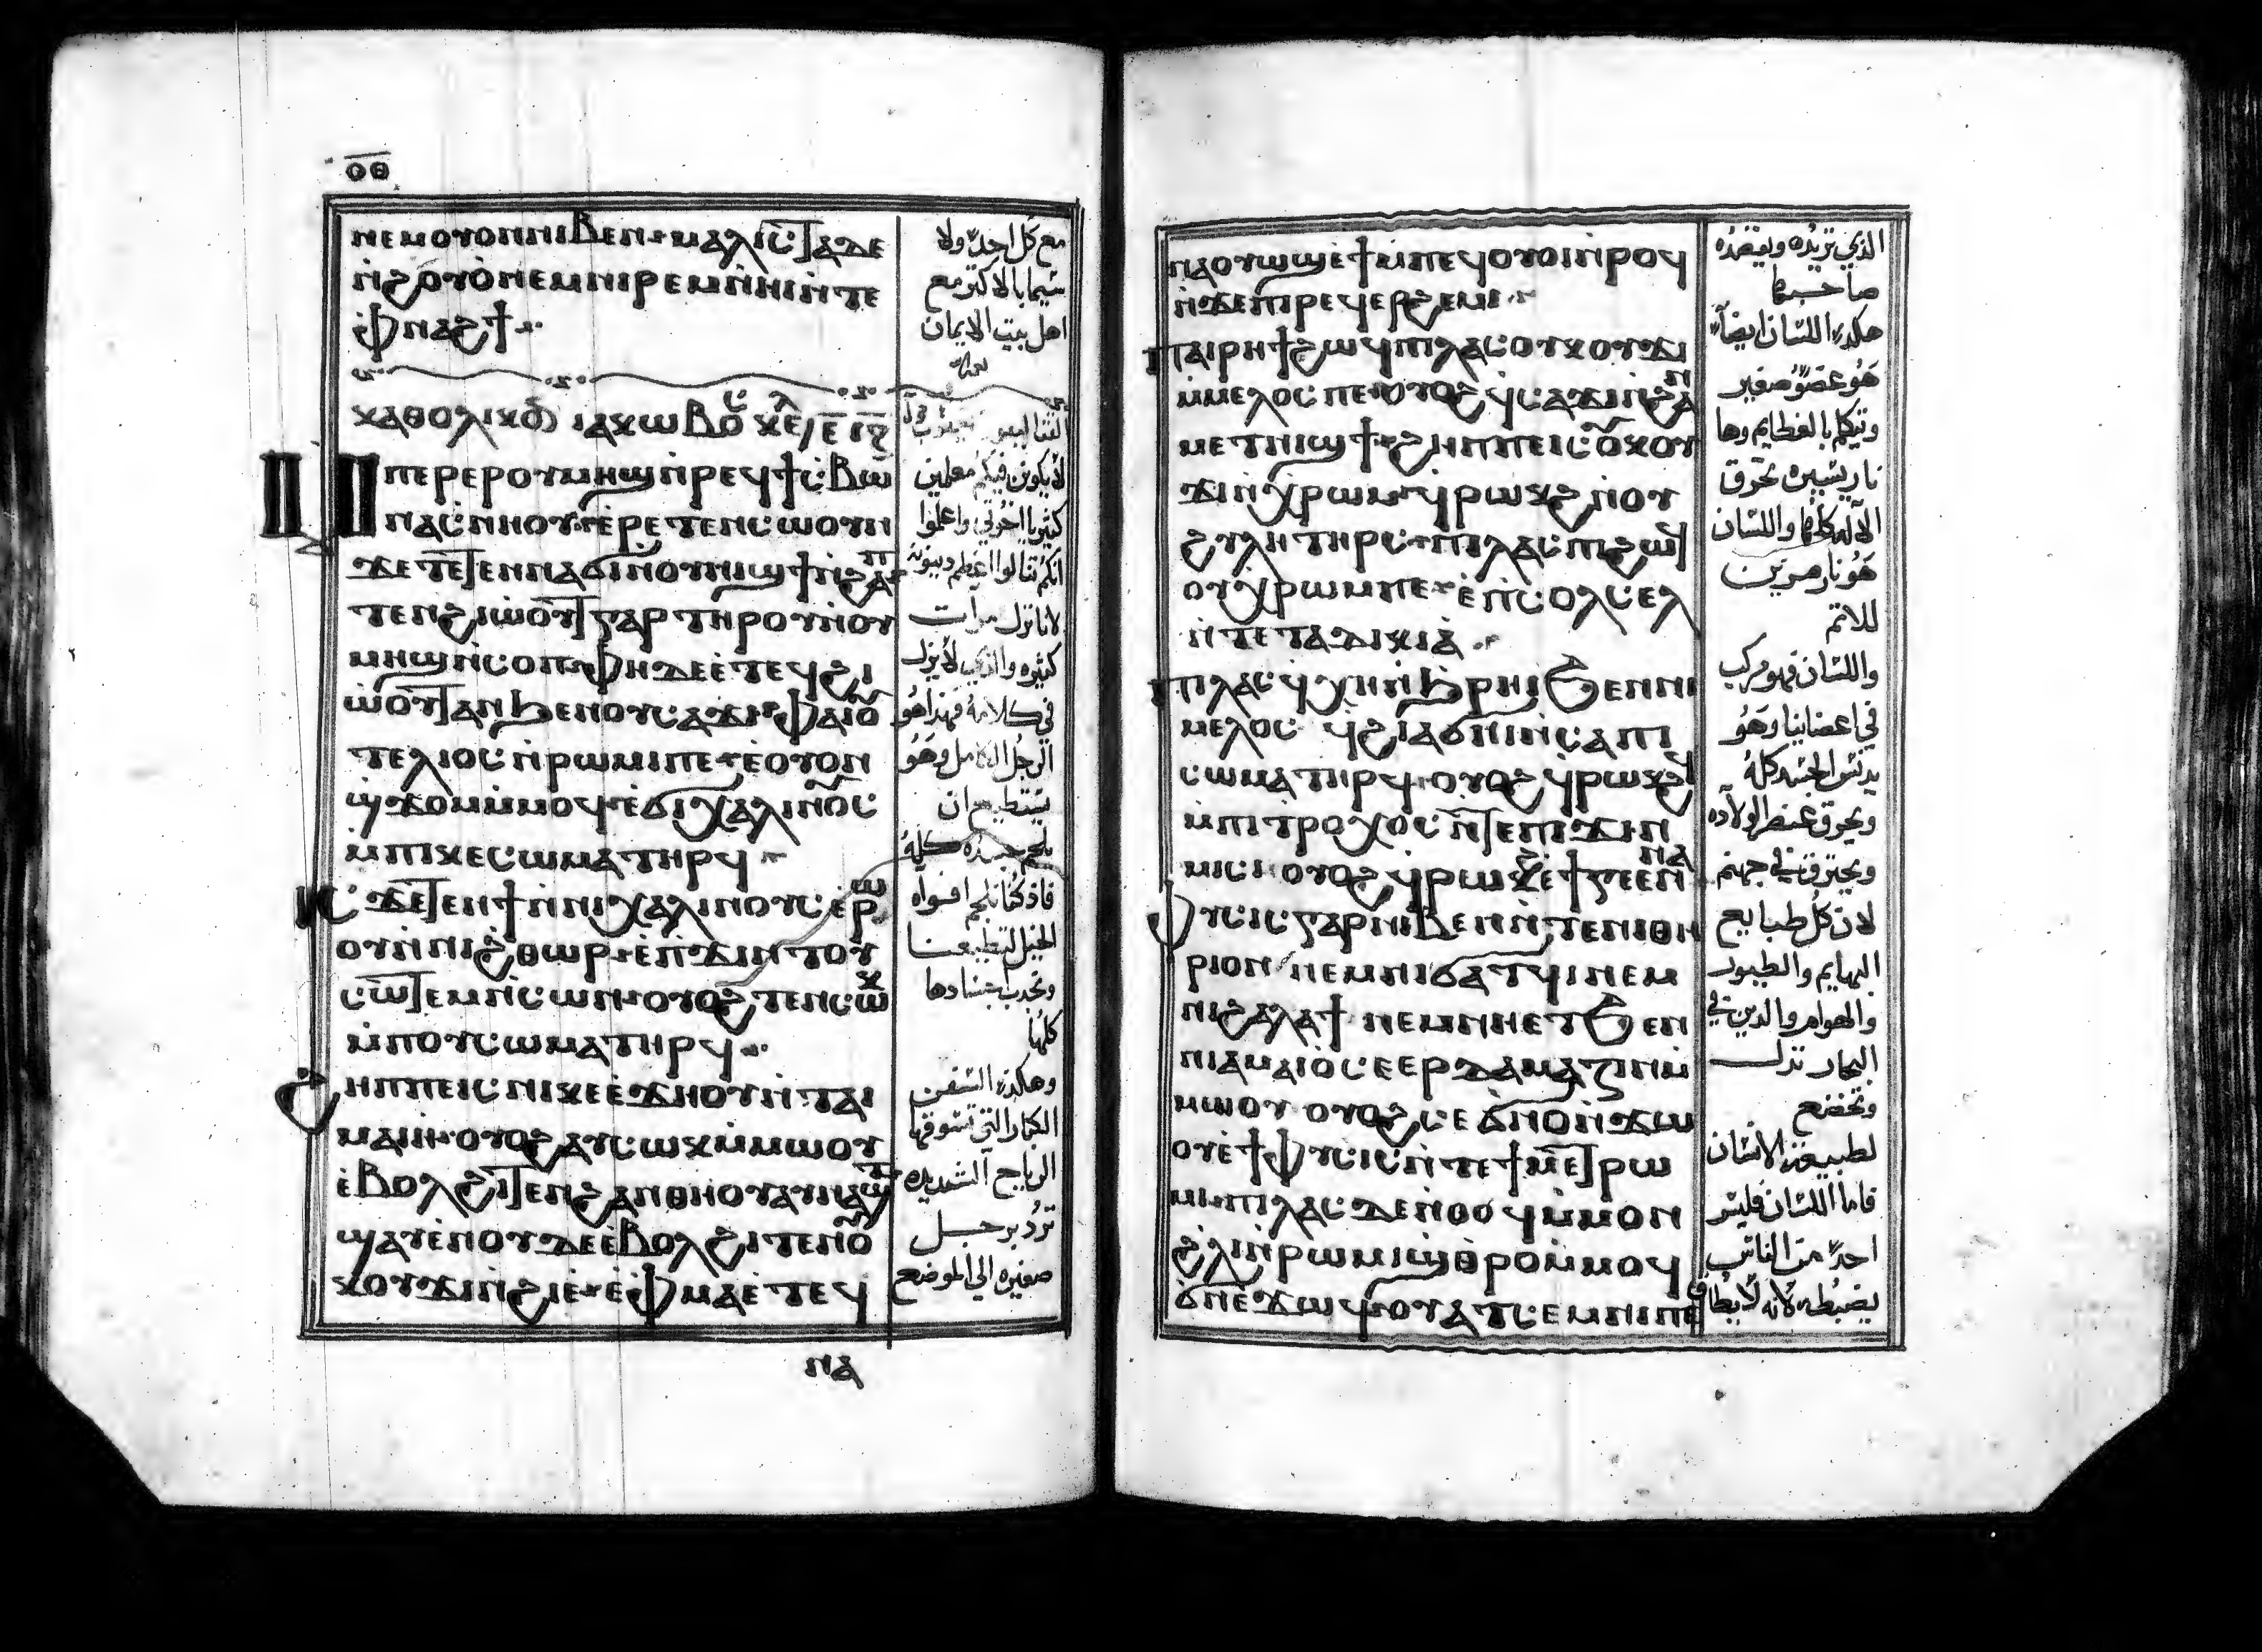 ⲟⲑ
ⲛⲉⲙⲟⲩⲟⲛⲛⲓⲃⲉⲛ ⲙⲁⲗⲓⲥⲧⲁⲇⲉ
ⲛ̀ϩⲟⲩⲟ̀ⲛⲉⲙⲛⲓⲣⲉⲙⲛ̀ⲏⲓⲛ̀ⲧⲉ
ⲫⲛⲁϩϯ
ⲡⲉⲣⲉⲣⲟⲩⲙⲏϣⲛ̀ⲣⲉϥϯⲥⲃⲱ
ⲛⲁⲥⲛⲏⲟⲩ ⲉⲣⲉⲧⲉⲛⲥⲱⲟⲩⲛ
ϫⲉⲧⲉⲧⲉⲛⲛⲁϭⲓⲛⲟⲩⲛⲓϣϯⲛ̀ϩⲁⲡ
ⲧⲉⲛϩⲓⲱ̀ⲟⲩⲧⲅⲁⲣⲧⲏⲣⲟⲩⲛ̀ⲟⲩ
ⲙⲏϣⲛ̀ⲥⲟⲡ ⲫⲏⲇⲉⲉ̀ⲧⲉϥϩⲓ
ⲱ̀ⲟⲩⲧⲁⲛϧⲉⲛⲟⲩⲥⲁϫⲓ ⲫⲁⲓⲟⲩ
ⲧⲉⲗⲓⲟⲥⲛ̀ⲣⲱⲙⲓⲡⲉ ⲉⲟⲩⲟⲛ
ϣϫⲟⲙⲙ̀ⲙⲟϥ ⲉ̀ϭⲓⲭⲁⲗⲓⲛⲟⲩⲥ
ⲙ̀ⲡⲓⲕⲉⲥⲱⲙⲁⲧⲏⲣϥ
ⲓⲥϫⲉⲧⲉⲛϯⲛ̀ⲛⲓⲭⲁⲗⲓⲛⲟⲩⲥⲉ̀ⲣⲱ
ⲟⲩⲛ̀ⲛⲓϩⲑⲱⲣ ⲉ̀ⲡϫⲓⲛⲧⲟⲩ
ⲥⲱⲧⲉⲙⲛ̀ⲥⲱⲛ ⲟⲩⲟϩⲧⲉⲛⲥⲱⲕ
ⲙ̀ⲡⲟⲩⲥⲱⲙⲁⲧⲏⲣϥ
ϩⲏⲡⲡⲉⲓⲥⲛⲓⲕⲉⲉ̀ϫⲏⲟⲩⲛ̀ⲧⲁⲓ
ⲙⲁⲓⲏ ⲟⲩⲟϩⲁⲩⲥⲱⲕⲙ̀ⲙⲱⲟⲩ
ⲉ̀ⲃⲟⲗϩⲓⲧⲉⲛϩⲁⲛⲑⲏⲟⲩⲁⲩⲛⲁϣⲧ
ϣⲁⲩⲉ̀ⲛⲟⲩⲇⲉⲉ̀ⲃⲟⲗϩⲓⲧⲉⲛⲟⲩ
ⲕⲟⲩϫⲓⲛ̀ϩⲓⲉ ⲉ̀ⲫⲙⲁⲉ̀ⲧⲉϥ
ⲛⲁ
مع كل احد ولا
سيما بالاكتر مع
اهل بيت الايمان
لا يكون فيكم معلمين
كثير يا اخوتي واعلموا
لاننا نزل مرات
كثيره والذي لا يزل
في كلامه فهذا هو
الرجل الكامل وهو
يستطيع ان
يلجم جسده كله
الخيل لتطيعنا
كلها
وهكذه السفن
الكبار التي تسوقها
الرياح الشديده
صغيره الي الموضع
ⲛⲁⲟⲩⲱϣⲉ̀ϯⲙ̀ⲡⲉϥⲟⲩⲟⲓⲛ̀ⲣⲟϥ
ⲛ̀ϫⲉⲡⲓⲣⲉϥⲉⲣϩⲉⲙⲓ
ⲡⲁⲓⲣⲏϯϩⲱϥⲡⲓⲗⲁⲥⲟⲩⲕⲟⲩϫⲓ
ⲙ̀ⲙⲉⲗⲟⲥⲡⲉ ⲟⲩⲟϩϥⲥⲁϫⲓⲛ̀ϩⲁⲛ
ⲙⲉⲧⲛⲓϣϯ ϩⲏⲡⲡⲉⲓⲥⲟⲩⲕⲟⲩ
ϫⲓⲛ̀ⲭⲣⲱⲙ ϥⲣⲱⲕϩⲛ̀ⲟⲩ
ϩⲩⲗⲏⲧⲏⲣⲥ ⲡⲓⲗⲁⲥⲡⲓϩⲱϥ
ⲟⲩⲭⲣⲱⲙⲡⲉ ⲉ̀ⲡⲥⲟⲗⲥⲉⲗ
ⲛ̀ⲧⲉⲧⲁⲇⲓⲕⲓⲁ̀
ⲡⲓⲗⲁⲥϥⲭⲏⲛ̀ϧⲣⲏⲓϧⲉⲛⲛⲓ
ⲙⲉⲗⲟⲥ ϥϩⲓⲁϭⲛⲓⲛ̀ⲥⲁⲡⲓ
ⲥⲱⲙⲁⲧⲏⲣϥ ⲟⲩⲟϩϥⲣⲱⲕϩ
ⲙ̀ⲡⲓⲧⲣⲟⲭⲟⲥⲛ̀ⲧⲉⲡⲓϫⲓⲛ
ⲙⲓⲥⲓ ⲟⲩⲟϩϥⲣⲱⲕϩⲉ̀ϯⲅⲉⲉⲛⲛⲁ
ⲫⲩⲥⲓⲥⲅⲁⲣⲛⲓⲃⲉⲛⲛ̀ⲧⲉⲛⲓⲑⲏ
ⲣⲓⲟⲛ ⲛⲉⲙⲛⲓϭⲁⲧϥⲓⲛⲉⲙ
ⲛⲓϩⲁⲗⲁϯ ⲛⲉⲙⲛⲏⲉⲧϧⲉⲛ
ⲛⲓⲁⲙⲁⲓⲟⲩⲥⲉⲉⲣⲇⲁⲙⲁⲍⲓⲛⲙ̀
ⲙⲱⲟⲩ ⲟⲩⲟϩⲥⲉϭⲛⲟⲛ̀ϫⲱ
ⲟⲩⲉ̀ϯⲫⲩⲥⲓⲥⲛ̀ⲧⲉϯⲙⲉⲧⲣⲱ
ⲙⲓ ⲡⲓⲗⲁⲥⲇⲉⲛ̀ⲑⲟϥⲙ̀ⲙⲟⲛ
ϩⲗⲓⲛ̀ⲣⲱⲙⲓϣⲑⲣⲟⲙ̀ⲙⲟϥ
ϭⲛⲉϫⲱϥ ⲟⲩⲁⲧⲥⲉⲙⲛⲓⲡⲉ
الذي تريده ويقصده
صاحبها
هكذا اللسان ايضا
هو عضو صغير
ويتكلم بالعظايم وها
نار يسيره تحرق
الاله كلها واللسان
للاثم
واللسان فهو مركب
في اعضاينا وهو
يدنس الجسد كله
ويحرق عنصر الولاده
ويحترق في جهنم
لان كل طبايع
البهايم والطيور
والهوام والذين في
البحار تذل
وتخضع
لطبيعة الانسان
فاما اللسان فليس
احد من الناس
يضبطه لانه لا يطاق